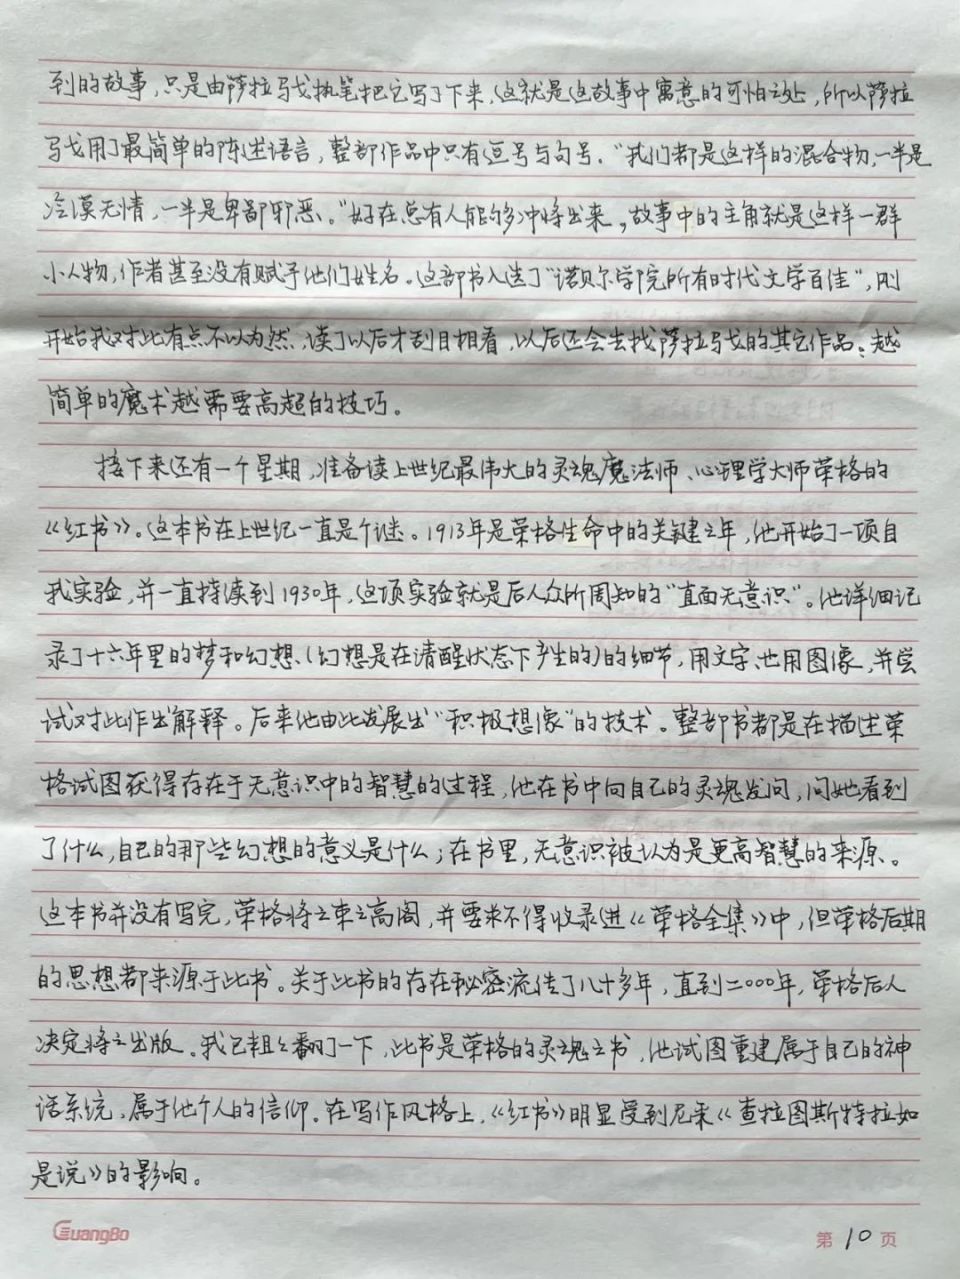 到的故事，只是由萨拉马戈执笔把它写了下来，这就是这故事中寓意的可怕之处，所以萨拉
马戈用了最简单的陈述语言，整部作品中只有逗号与句号。“我们都是这样的混合物，一半是
冷漠无情，一半是卑鄙邪恶。”好在总有人能够冲将出来，故事中的主角就是这样一群
小人物，作者甚至没有赋予他们姓名。这部书入选了“诺贝尔学院所有时代文学百佳”，刚
开始我对此有点不以为然，读了以后才刮目相看，以后还会去找萨拉马戈的其它作品：越
简单的魔术越需要高超的技巧。
接下来还有一个星期，准备读上世纪最伟大的灵魂魔法师、心理学大师荣格的
《红书》。这本书在上世纪一直是个谜。1913年是荣格生命中的关键之年，他开始了一项自
我实验，并一直持续到1930年，这项实验就是后人众所周知的“直面无意识”。他详细记
录了十六年里的梦和幻想（幻想是在清醒状态下产生的）的细节，用文字、也用图像，并尝
试对此作出解释。后来他由此发展出“积极想像”的技术。整部书都是在描述荣
格试图获得存在于无意识中的智慧的过程，他在书中向自己的灵魂发问，问她看到
了什么，自己的那些幻想的意义是什么；在书里，无意识被认为是更高智慧的来源。
这本书并没有写完，荣格将之束之高阁，并要求不得收录进《荣格全集》中，但荣格后期
的思想都来源于此书。关于此书的存在秘密流传了八十多年，直到二000年，荣格后人
决定将之出版。我已粗々翻了一下，此书是荣格的灵魂之书，他试图重建属于自己的神
话系统，属于他个人的信仰。在写作风格上，《红书》明显受到尼采《查拉图斯特拉如
是说》的影响。
GuangBo
第10页